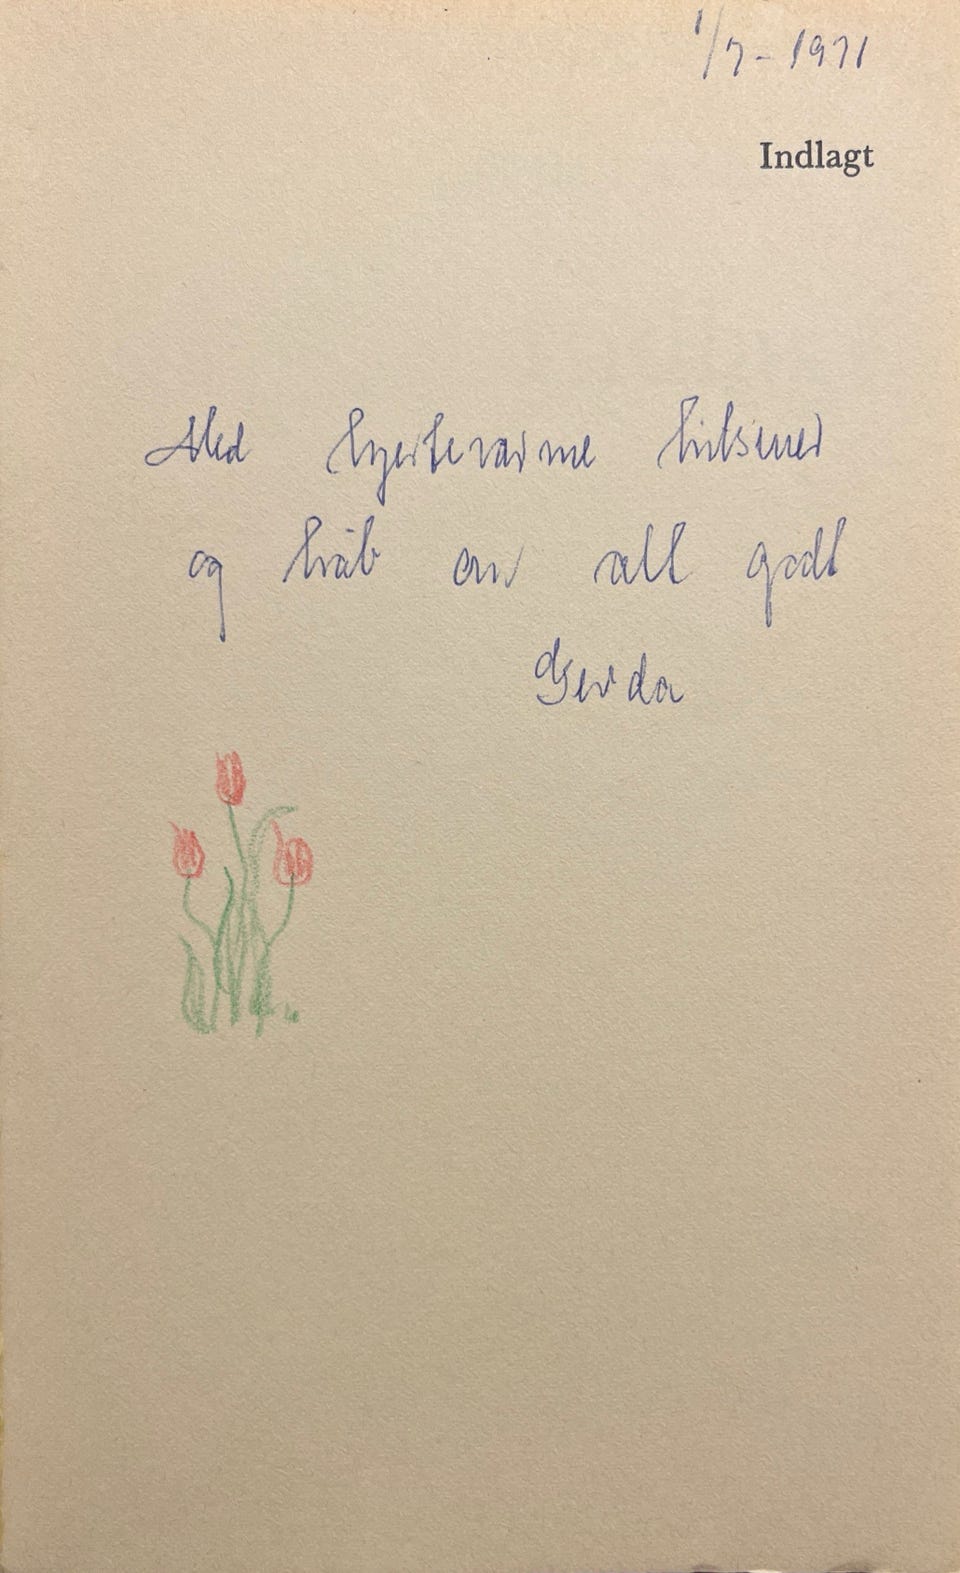 1/7 - 1971
Indlagt
Med hjertevarme hilsner
og håb om alt godt
Gerda